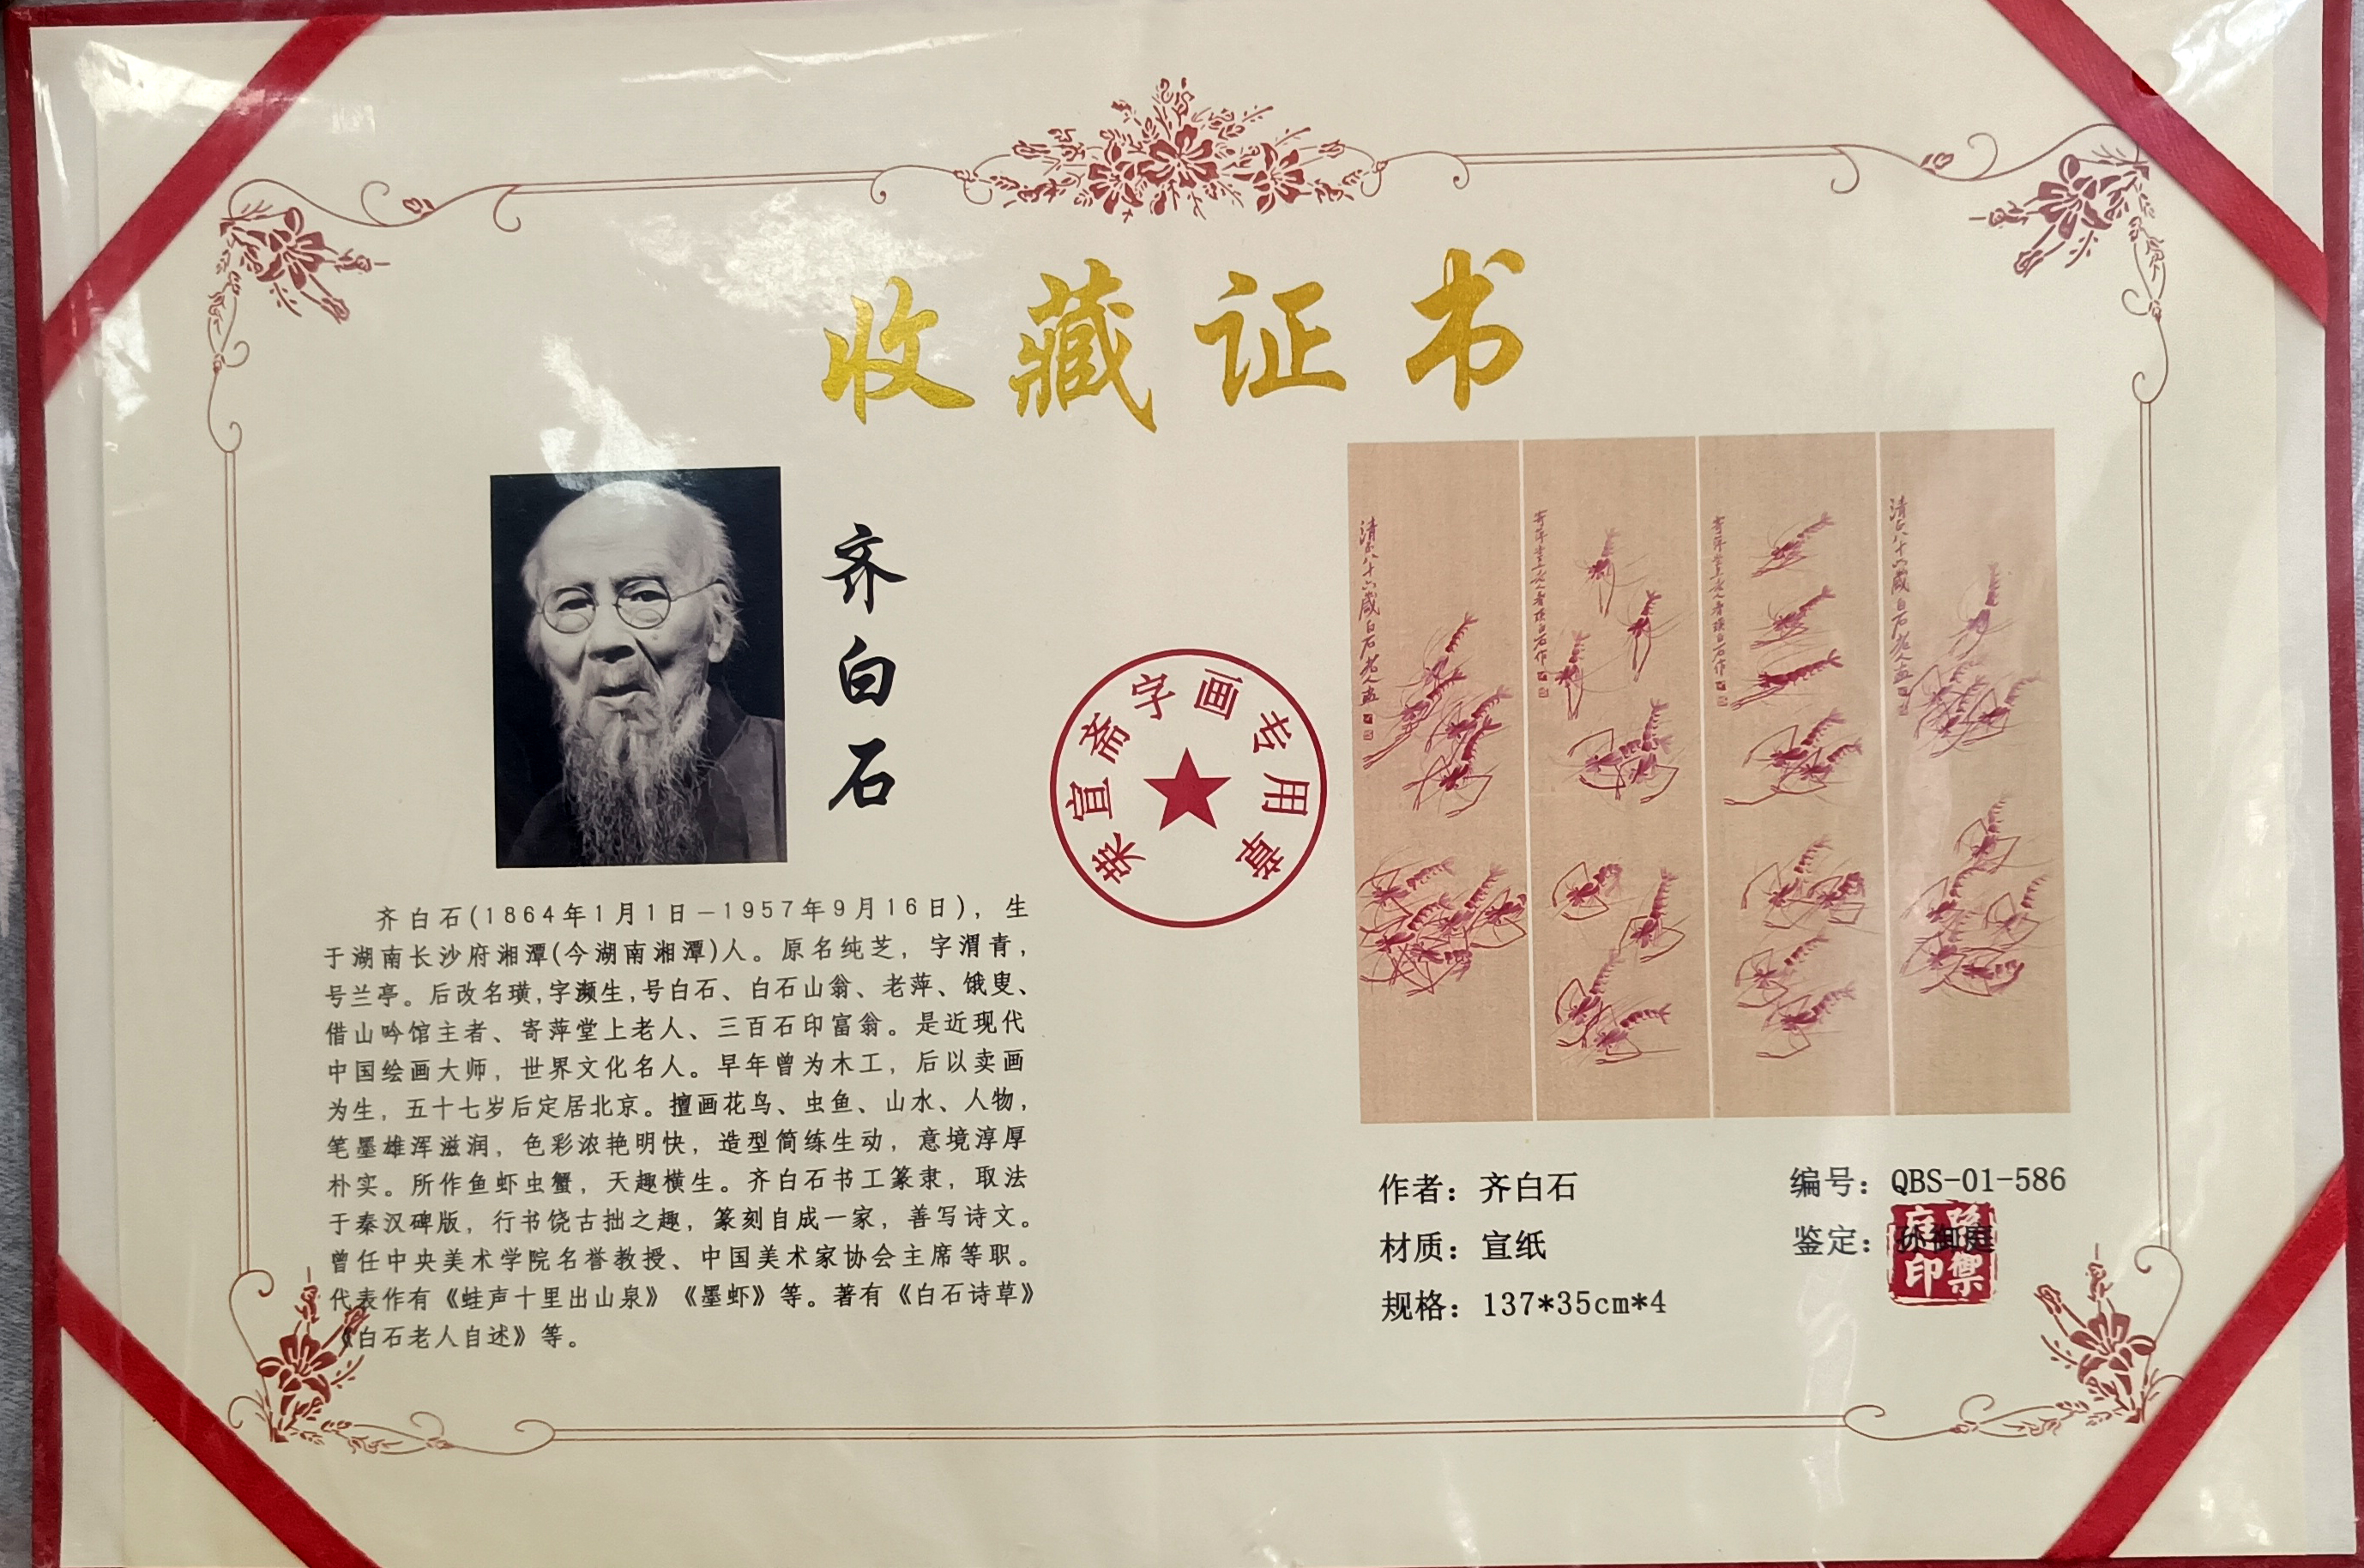 收藏证书
齐白石
荣宣斋字画专用章
齐白石(1864年1月1日—1957年9月16日)，生
于湖南长沙府湘潭(今湖南湘潭)人。原名纯芝，字渭青，
号兰亭。后改名璜,字濒生,号白石、白石山翁、老萍、饿叟、
借山吟馆主者、寄萍堂上老人、三百石印富翁。是近现代
中国绘画大师，世界文化名人。早年曾为木工，后以卖画
为生，五十七岁后定居北京。擅画花鸟、虫鱼、山水、人物，
笔墨雄浑滋润，色彩浓艳明快，造型简练生动，意境淳厚
朴实。所作鱼虾虫蟹，天趣横生。齐白石书工篆隶，取法
于秦汉碑版，行书饶古拙之趣，篆刻自成一家，善写诗文。
曾任中央美术学院名誉教授、中国美术家协会主席等职。
代表作有《蛙声十里出山泉》《墨虾》等。著有《白石诗草》
《白石老人自述》等。
八十六岁白石老人画
寄萍堂上老人齐璜白石作
寄萍堂上老人齐璜白石作
八十六岁白石老人画
作者：齐白石
材质：宣纸
规格：137*35cm*4
编号：QBS-01-586
鉴定：孙御庭
孙御庭印